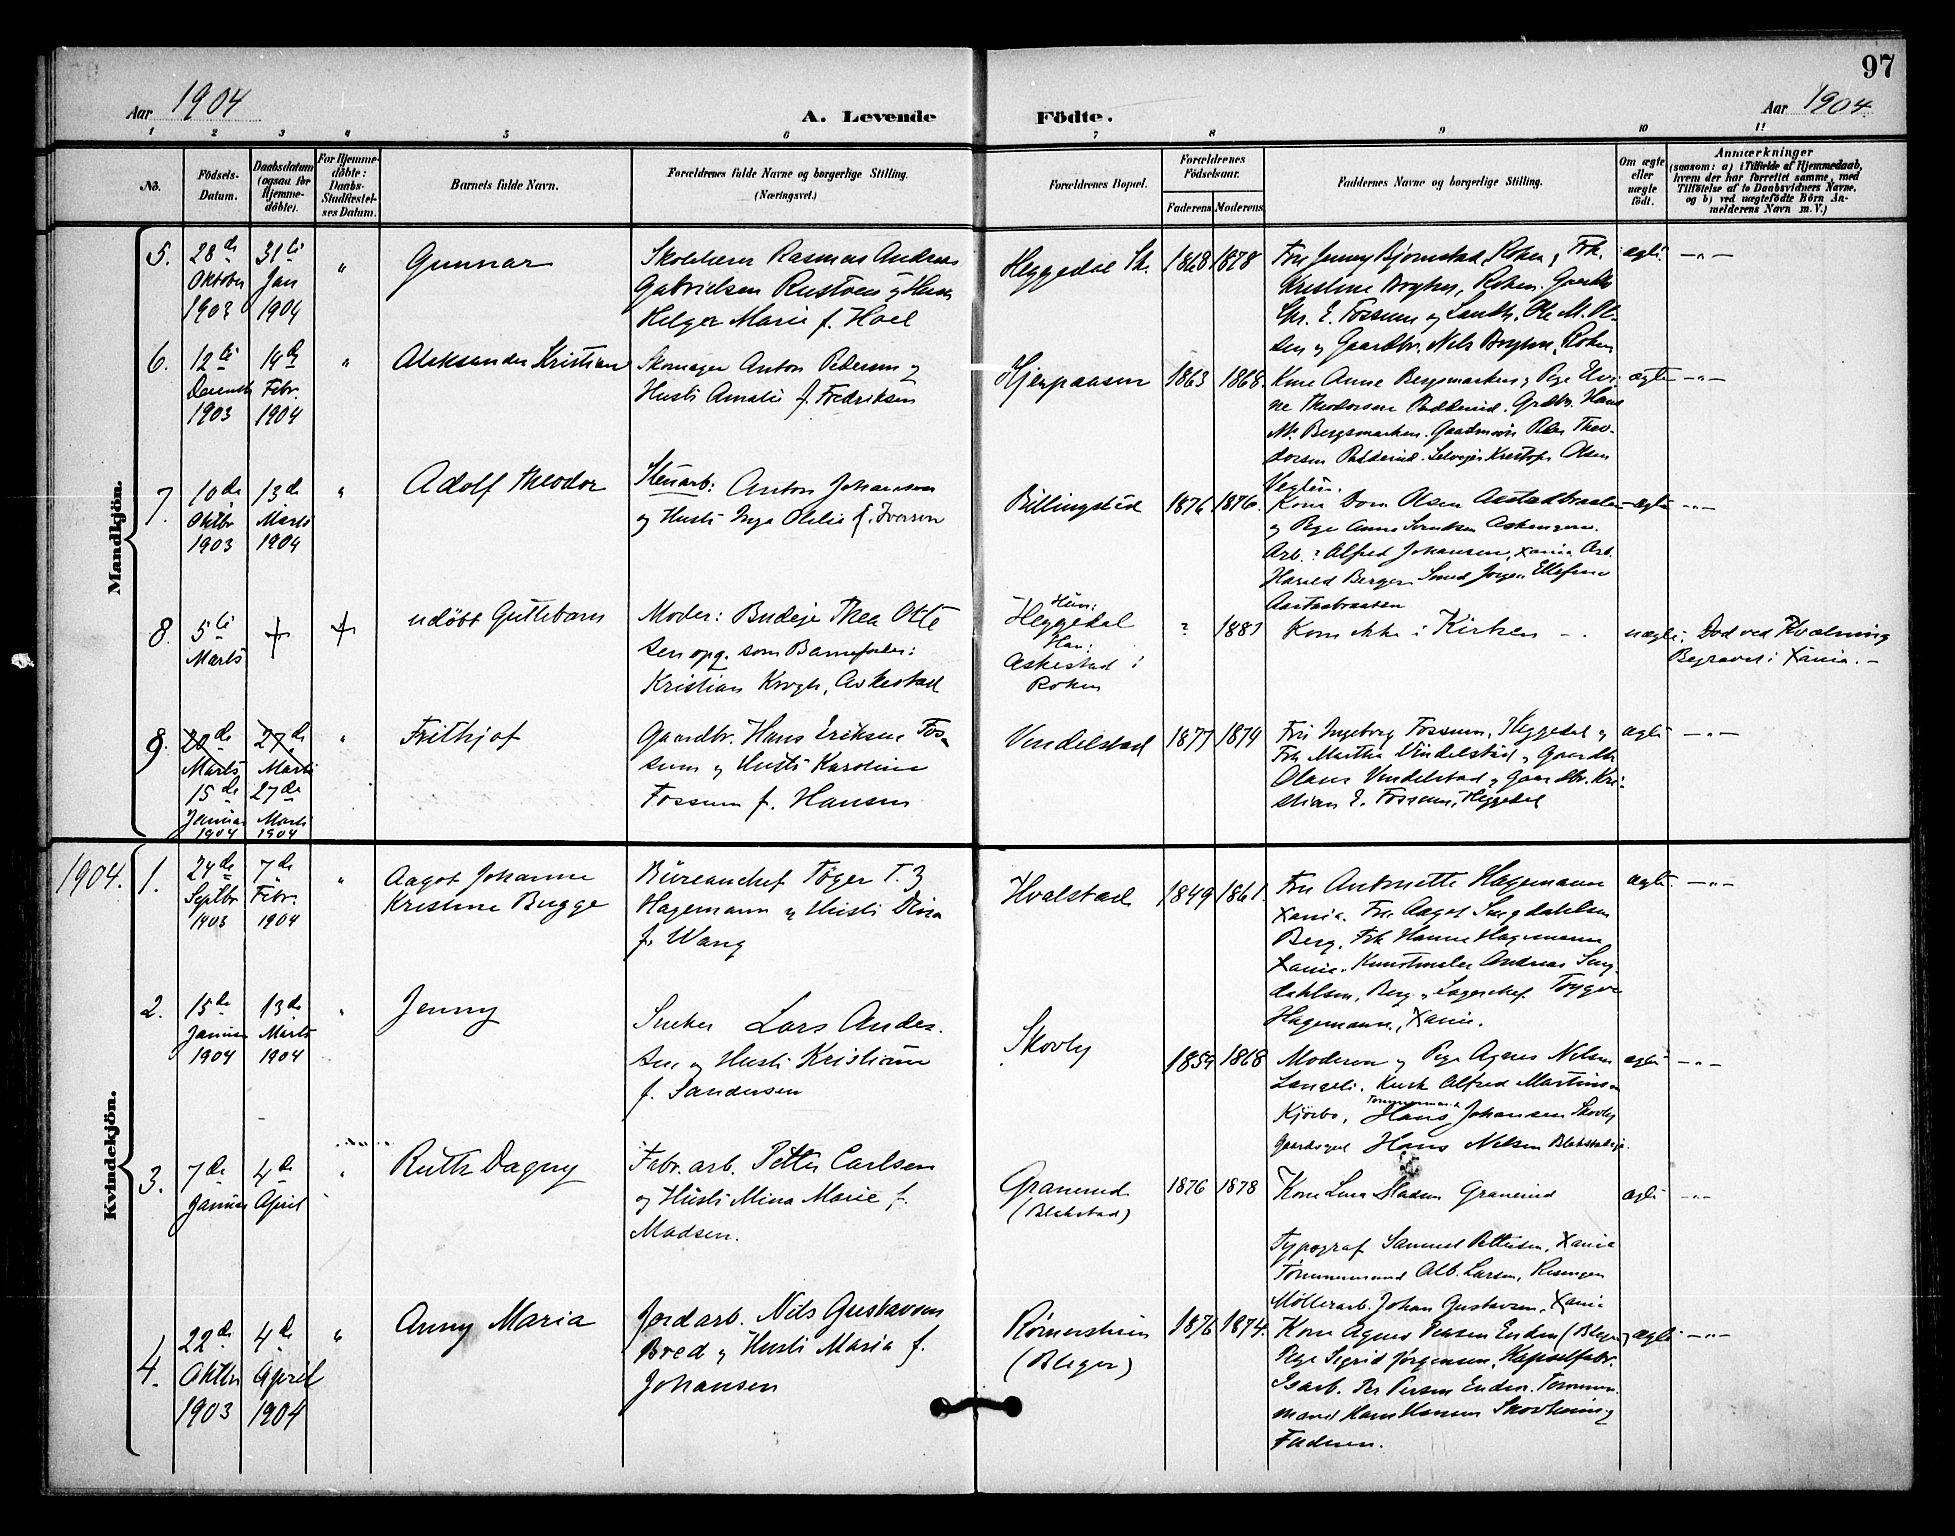 97
Aar 1904
A. Levende Födte.
Aar 1904
1 2 3 4 5 6 7 8 9 10 11
No.
Födsels-Datum.
Daabsdatum (ogsaa for Hjemme-döbte).
For Hjemme-döbte: Daabs-Stadfæstel-ses Datum.
Barnets fulde Navn.
Forældrenes fulde Navne og borgerlige Stilling.
(Næringsvei.)
Forældrenes Bopæl.
Forældrenes Födselsaar.
Faderens. Moderens.
Faddernes Navne og borgerlige Stilling.
Om ægte eller uægte födt.
Anmærkninger
(saasom: a) i Tilfælde af Hjemmedaab,
hvem der har forrettet samme, med
Tilföielse af to Daabsvidners Navne,
og b) ved uægtefödte Börn An-
melderens Navn m. V.)
Mandkjön.
5. 28de Oktober 1903
31te Jan 1904
"
Gunnar
Rasmus Andreas
Gabrielsen Rustøen og
Helga Marie f. Hoel
Heggedal St.
1868 1878
Fru Jenny Bjørnstad, Røken, Frk.
Kristine Bryhn, Røken. Gaardbr
Chr. E. Fossum og Landh. Ole M. Ol-
sen og Gaardbr. Nels Bryhn, Røken
ægte
—"—
6. 12te 1903
14de Febr. 1904
"
Aleksander Kristian
Skomager Anton Pedersen og
Hustr Amalie f. Fredriksen
1863 1868.
Kone Anne Bergsmarken og Pige Elvi-
ne Theodorsen
M. Bergsmarken. Peder Theo-
dorsen Olsen
ægte
—"—
7. 10de Oktbr 1903
13de Marts 1904
"
Adolf Theodor
Stenarb: Anton Johansen
og Hustr Inga Otilie f. Iversen
Billingstad
1876 1876.
Kone Olsen
og Pige Anna
Arb: Alfred Johansen, Xania Arb.
Harald Berger. Smed Jørgen Ellefsen
ægte
—"—
8. 5te Marts
udöbt Guttebarn
Moder: Budeje Thea Otte
sen opg. som Barnefader:
Kristian Krogh, Askestad
Hun:
Heggedal
Han:
Askestad i
Røken
? 1881
Kom ikke i Kirken —.
uægte.
Død ved Kvælning
Begravet i Xania.—
9. 20de Marts
15de Januar 1904
27de Marts
27de Marts 1904
"
Frithjof
Gaardbr. Hans Eriksen Fos-
sum og Hustr Karoline
Fossum f. Hansen
Vendelstad
1877 1879
Fru Ingeborg Fossum, Heggedal og
Frk Martha Vendelstad og Gaardbr
Olaus Vendelstad og Gaardbr. Kri-
stian E. Fossum, Heggedal
ægte
—"—
Kvindekjön.
1904.
1. 24de Septbr 1903
7de Febr. 1904
"
Aagot Johanne
Kristine Bugge
Büreauchef Tøger T. B
Hagemann og Hustr Dina
f. Wang
Hvalstad
1849 1861.
Fru Antonette Hagemann
Xania. Fru Aagot Singdahlsen
Berg. Frk Hanne Hagemann
Xania. Kunstmaler Andreas Sing-
dahlsen, Berg og Lagerchef Tøger
Hagemann, Xania.
ægte.
—"—
2. 15de Januar 1904
13de Marts 1904
"
Jenny
Sneker Lars Ander-
sen og Hustr Kristiane
f. Sandersen
Skovly
1854 1868
Moderen og Pige Agnes Nilsen
Kusk Alfred Martinsen
Kjørbo, Tømmermand Hans Johansen Skovly
Hans Nilsen
ægte
—"—
3. 7de Januar
4de April
"
Ruth Dagny
Fabr. arb. Petter Carlsen
og Hustr Mina Marie f.
Madsen.
Granerud
(Blekstad)
1876 1878
Kone Lina Madsen Granerud
Typograf Samuel Pettersen, Xania
Tømmermand Alb. Larsen, Risengen
Møllerarb. Johan Gustavsen, Xania
ægte
—"—
4. 22de Oktbr 1903
4de April 1904
"
Anny Maria
Jordarb. Nils Gustavsen
Bred og Hustr Maria f.
Johansen
(Bleger)
1876 1874.
Kone Agnes
Pige Sigrid Jørgensen, Kapselfabr.
Isarb. Per Persen Enden. Tømmer-
mand Hans Hansen og
Faderen.
ægte
—"—